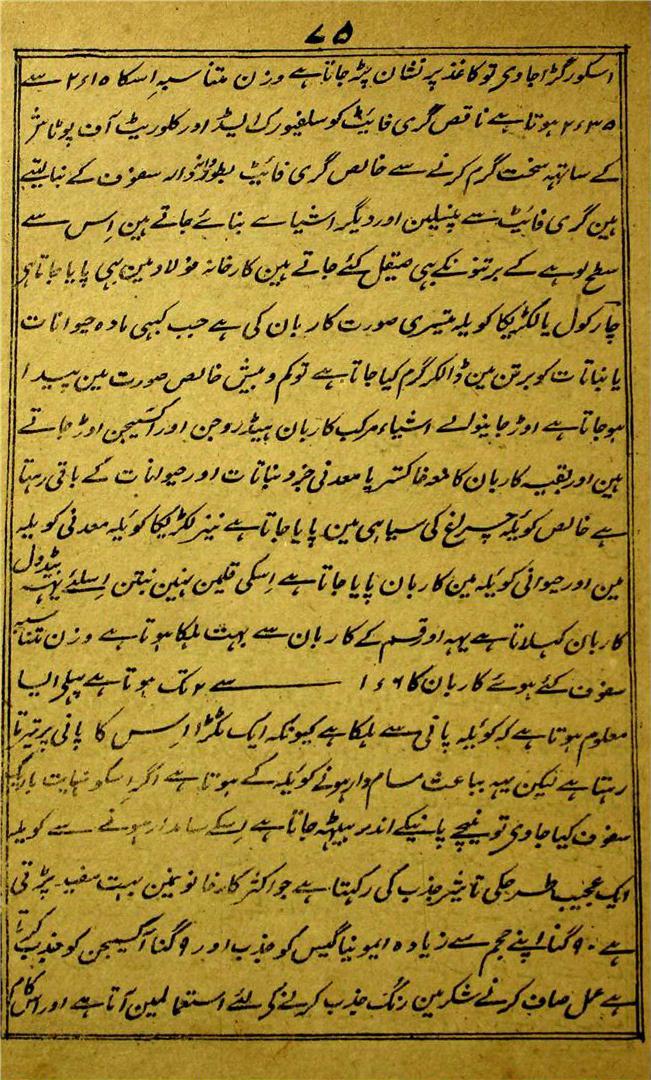 ۷۵
اسکو رگڑا جاوی تو کاغذ پر نشان پڑ جاتا ہے وزن متناسبہ اسکا ۲٫۱۵ سے
۲٫۳۵ ہوتا ہے ناقص گری فائیٹ کو سلفیورک ایسڈ اور کلوریٹ آف پوٹاش
کے ساتہہ سخت گرم کرنے سے خالص گری فائیٹ بطور دانہ وار سفوف کے بنا لیتے
ہین گری فائیٹ سے پنسلین اور دیگر اشیا سے بنائے جاتے ہین اِس سے
سطح لوہے کے برتنونکے بہی صیقل کئے جاتے ہین کارخانہ فولاد مین بہی پایا جاتا ہی
چارکول یا لکڑیکا کویلہ تیسری صورت کاربان کی ہے جب کبہی مادہ حیوانات
یا نباتات کو برتن مین ڈالکر گرم کیا جاتا ہے تو کم و بیش خالص صورت مین پیدا
ہو جاتا ہے اوڑ جانیوالے اشیاء مرکب کاربان ہیڈروجن اور آکسیجن اوڑ جاتے
ہین اور بقیہ کاربان کا معہ خاکستر یا معدنی جزو نباتات اور حیوانات کے باقی رہتا
ہے خالص کوئلہ چراغ کی سیاہی مین پایا جاتا ہے نیز لکڑیکا کوئلہ معدنی کویلہ
مین اور حیوانی کوئلہ مین کاربان پایا جاتا ہے اِسکی قلمین نہین بنتن اِسلئے یہہ بیڈول
کاربان کہلاتا ہے یہہ اور قسم کے کاربان سے بہت ہلکا ہوتا ہے وزن متناسبہ
سفوف کئے ہوئے کاربان کا ۱٫۶ ـــــــــ سے ۲ تک ہوتا ہے پہلی ایسا
معلوم ہوتا ہے کہ کوئیلہ پانی سے ہلکا ہے کیونکہ ایک ٹکڑا اِس کا پانی پر تیرتا
رہتا ہے لیکن یہہ بباعث مسام وار ہونے کوئیلہ کے ہوتا ہے اگر اِسکو نہایت باریک
سفوف کیا جاوی تو نیچے پانیکے اندر بیٹہہ جاتا ہے اِسکے سامدار ہونے سے کویلہ
ایک عجیب طرحکی تاثیر جذب کی رکہتا ہے جو اکثر کارخانونمین بہت مفید پڑتی
ہے ۹۰ گنا اپنے حجم سے زیادہ ایمونیا گیس کو جذب اور ۹ گنا آکسیجن کو جذب کرتا
ہے عمل صاف کرنے شکر مین رنگ جذب کرنے کی لئے استعمالمین آتا ہے اور اس کام